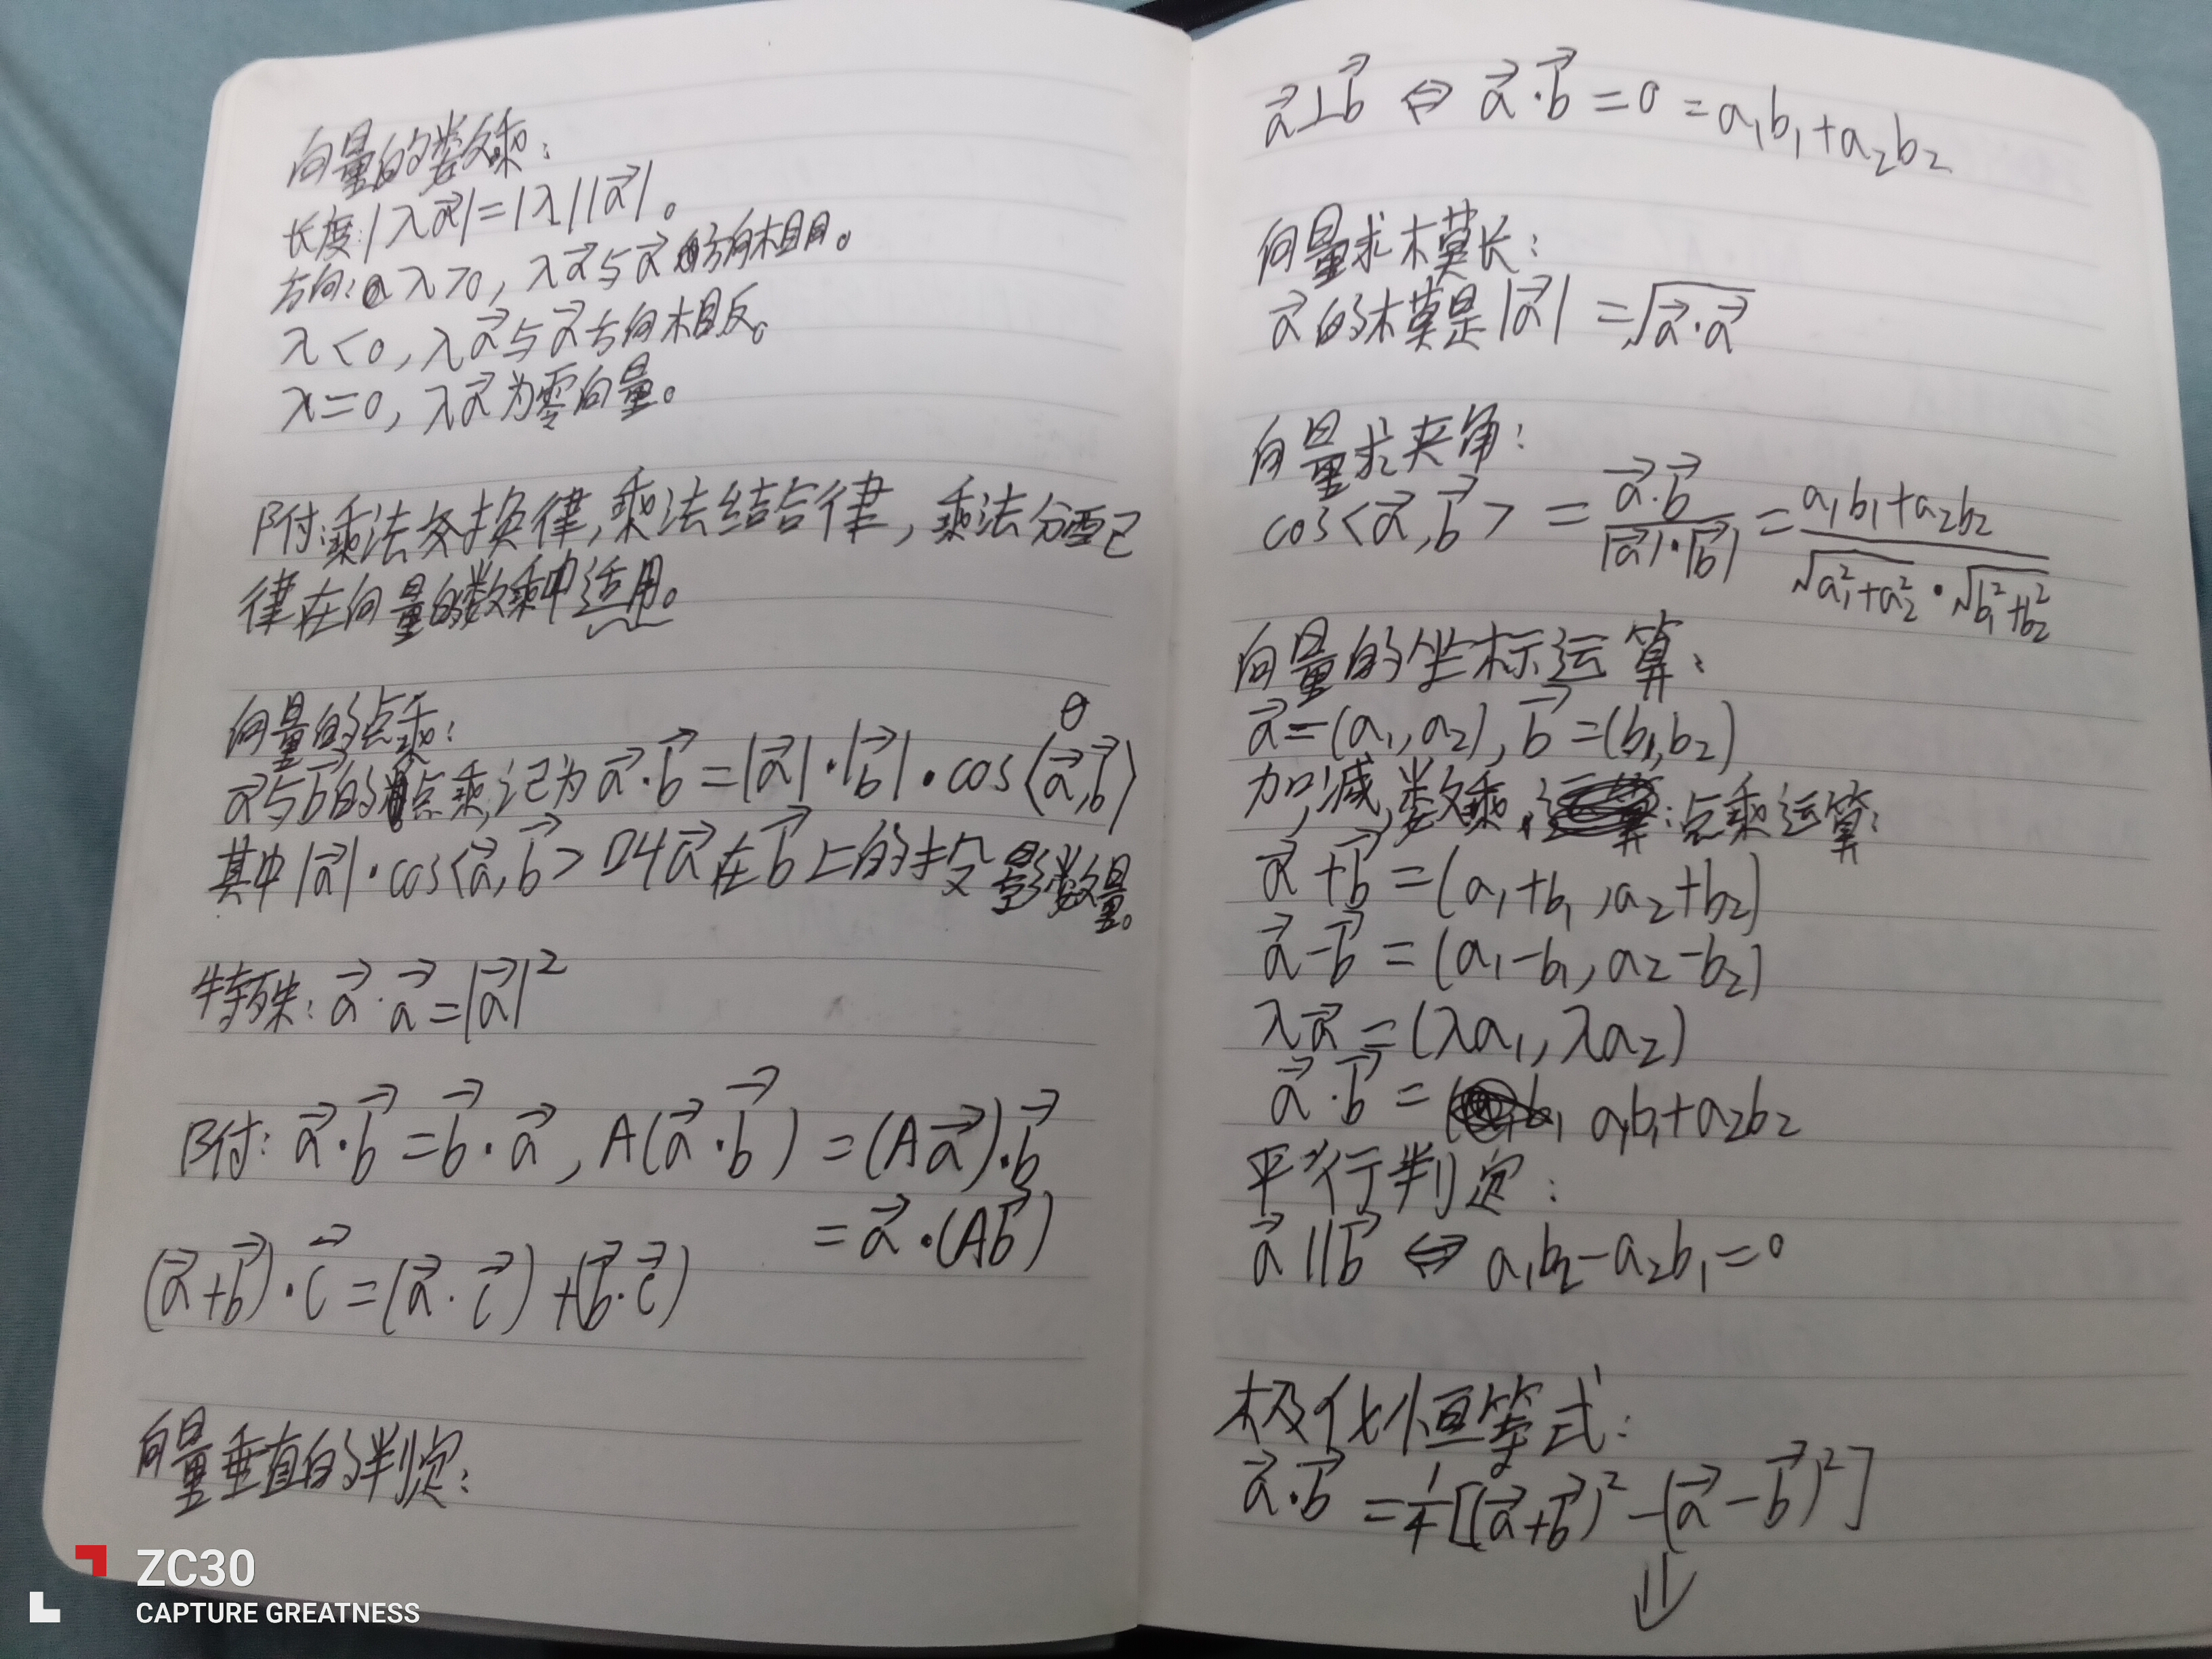 向量的数乘：
长度:|λa⃗|=|λ||a⃗|。
方向：λ>0，λa⃗与a⃗的方向相同。
λ<0，λa⃗与a⃗方向相反。
λ=0，λa⃗为零向量。
附：乘法交换律，乘法结合律，乘法分配
律在向量的数乘中适用。
向量的点乘：
θ
a⃗与b⃗的点乘，记为a⃗·b⃗=|a⃗|·|b⃗|·cos⟨a⃗,b⃗⟩
其中|a⃗|·cos<a⃗,b⃗>叫a⃗在b⃗上的投影数量。
特殊：a⃗·a⃗=|a⃗|²
附：a⃗·b⃗=b⃗·a⃗，λ(a⃗·b⃗)=(λa⃗)·b⃗
=a⃗·(λb⃗)
(a⃗+b⃗)·c⃗=(a⃗·c⃗)+(b⃗·c⃗)
向量垂直的判定：
ZC30
CAPTURE GREATNESS
a⃗⊥b⃗⇔a⃗·b⃗=0=a₁b₁+a₂b₂
向量求模长：
a⃗的模是|a⃗|=√(a⃗·a⃗)
向量求夹角：
cos<a⃗,b⃗>=a⃗·b⃗/(|a⃗|·|b⃗|)=(a₁b₁+a₂b₂)/(√(a₁²+a₂²)·√(b₁²+b₂²))
向量的坐标运算：
a⃗=(a₁,a₂),b⃗=(b₁,b₂)
加,减,数乘,点乘运算：
a⃗+b⃗=(a₁+b₁,a₂+b₂)
a⃗-b⃗=(a₁-b₁,a₂-b₂)
λa⃗=(λa₁,λa₂)
a⃗·b⃗=a₁b₁+a₂b₂
平行判定：
a⃗∥b⃗⇔a₁b₂-a₂b₁=0
极化恒等式：
a⃗·b⃗=¼[(a⃗+b⃗)²-(a⃗-b⃗)²]
⇓